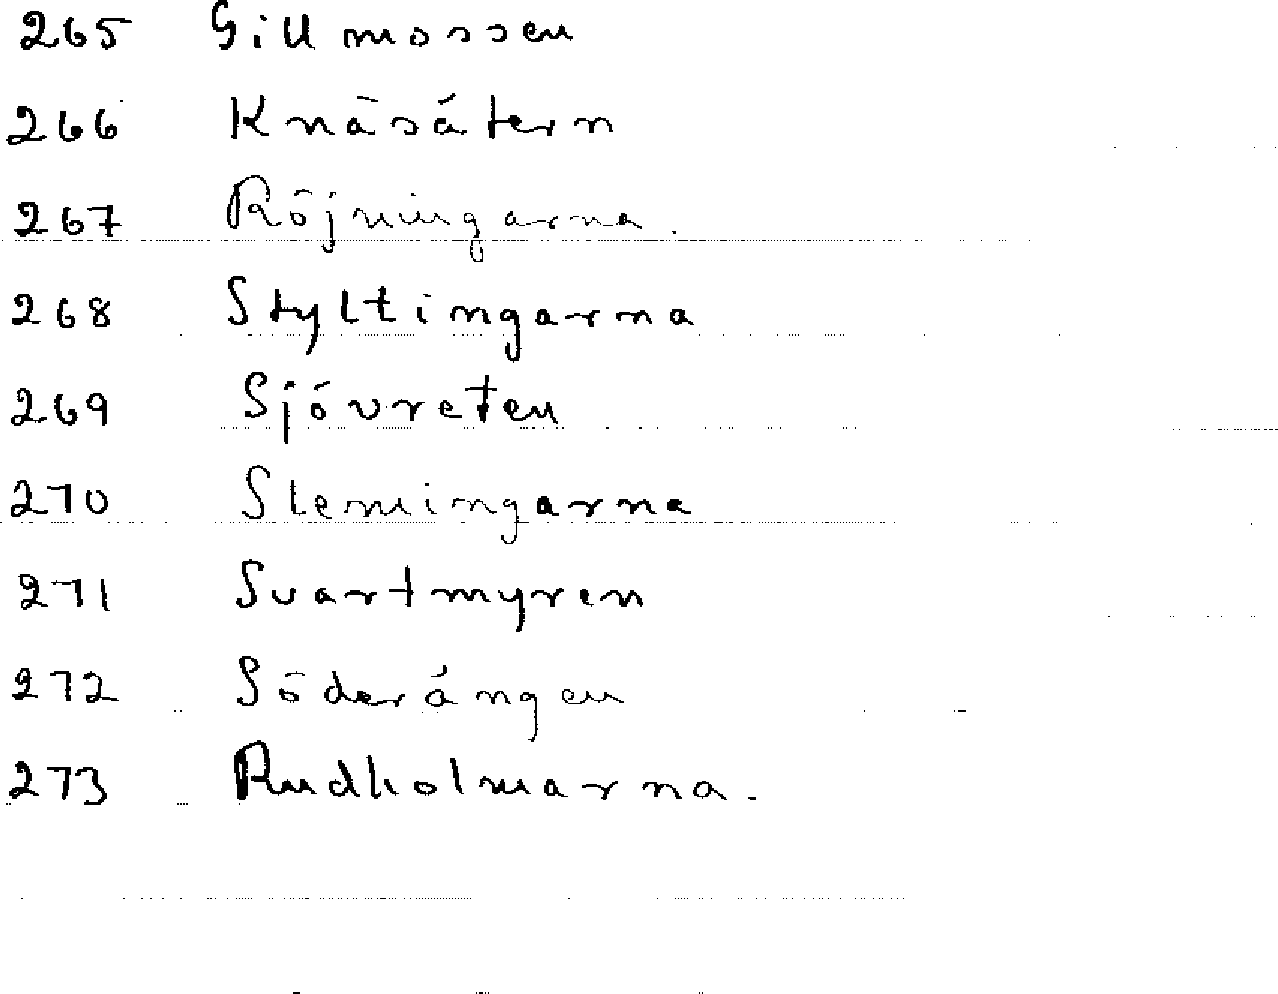 265 Gillmossen
266 Knäsätern
267 Röjningarna.
268 Styltingarna
269 Sjövreten
270 Slemingarna
271 Svartmyren
272 Söderängen
273 Rudholmarna.